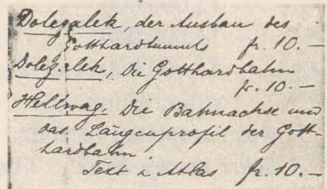 Dolezalek, der Ausbau des
Gotthardtunnels fr. 10.—
Dolezalek, Die Gotthardbahn
fr. 10.—
Hellwag. Die Bahnachse und
das Längenprofil der Gott-
hardbahn
Text & Atlas fr. 10.—